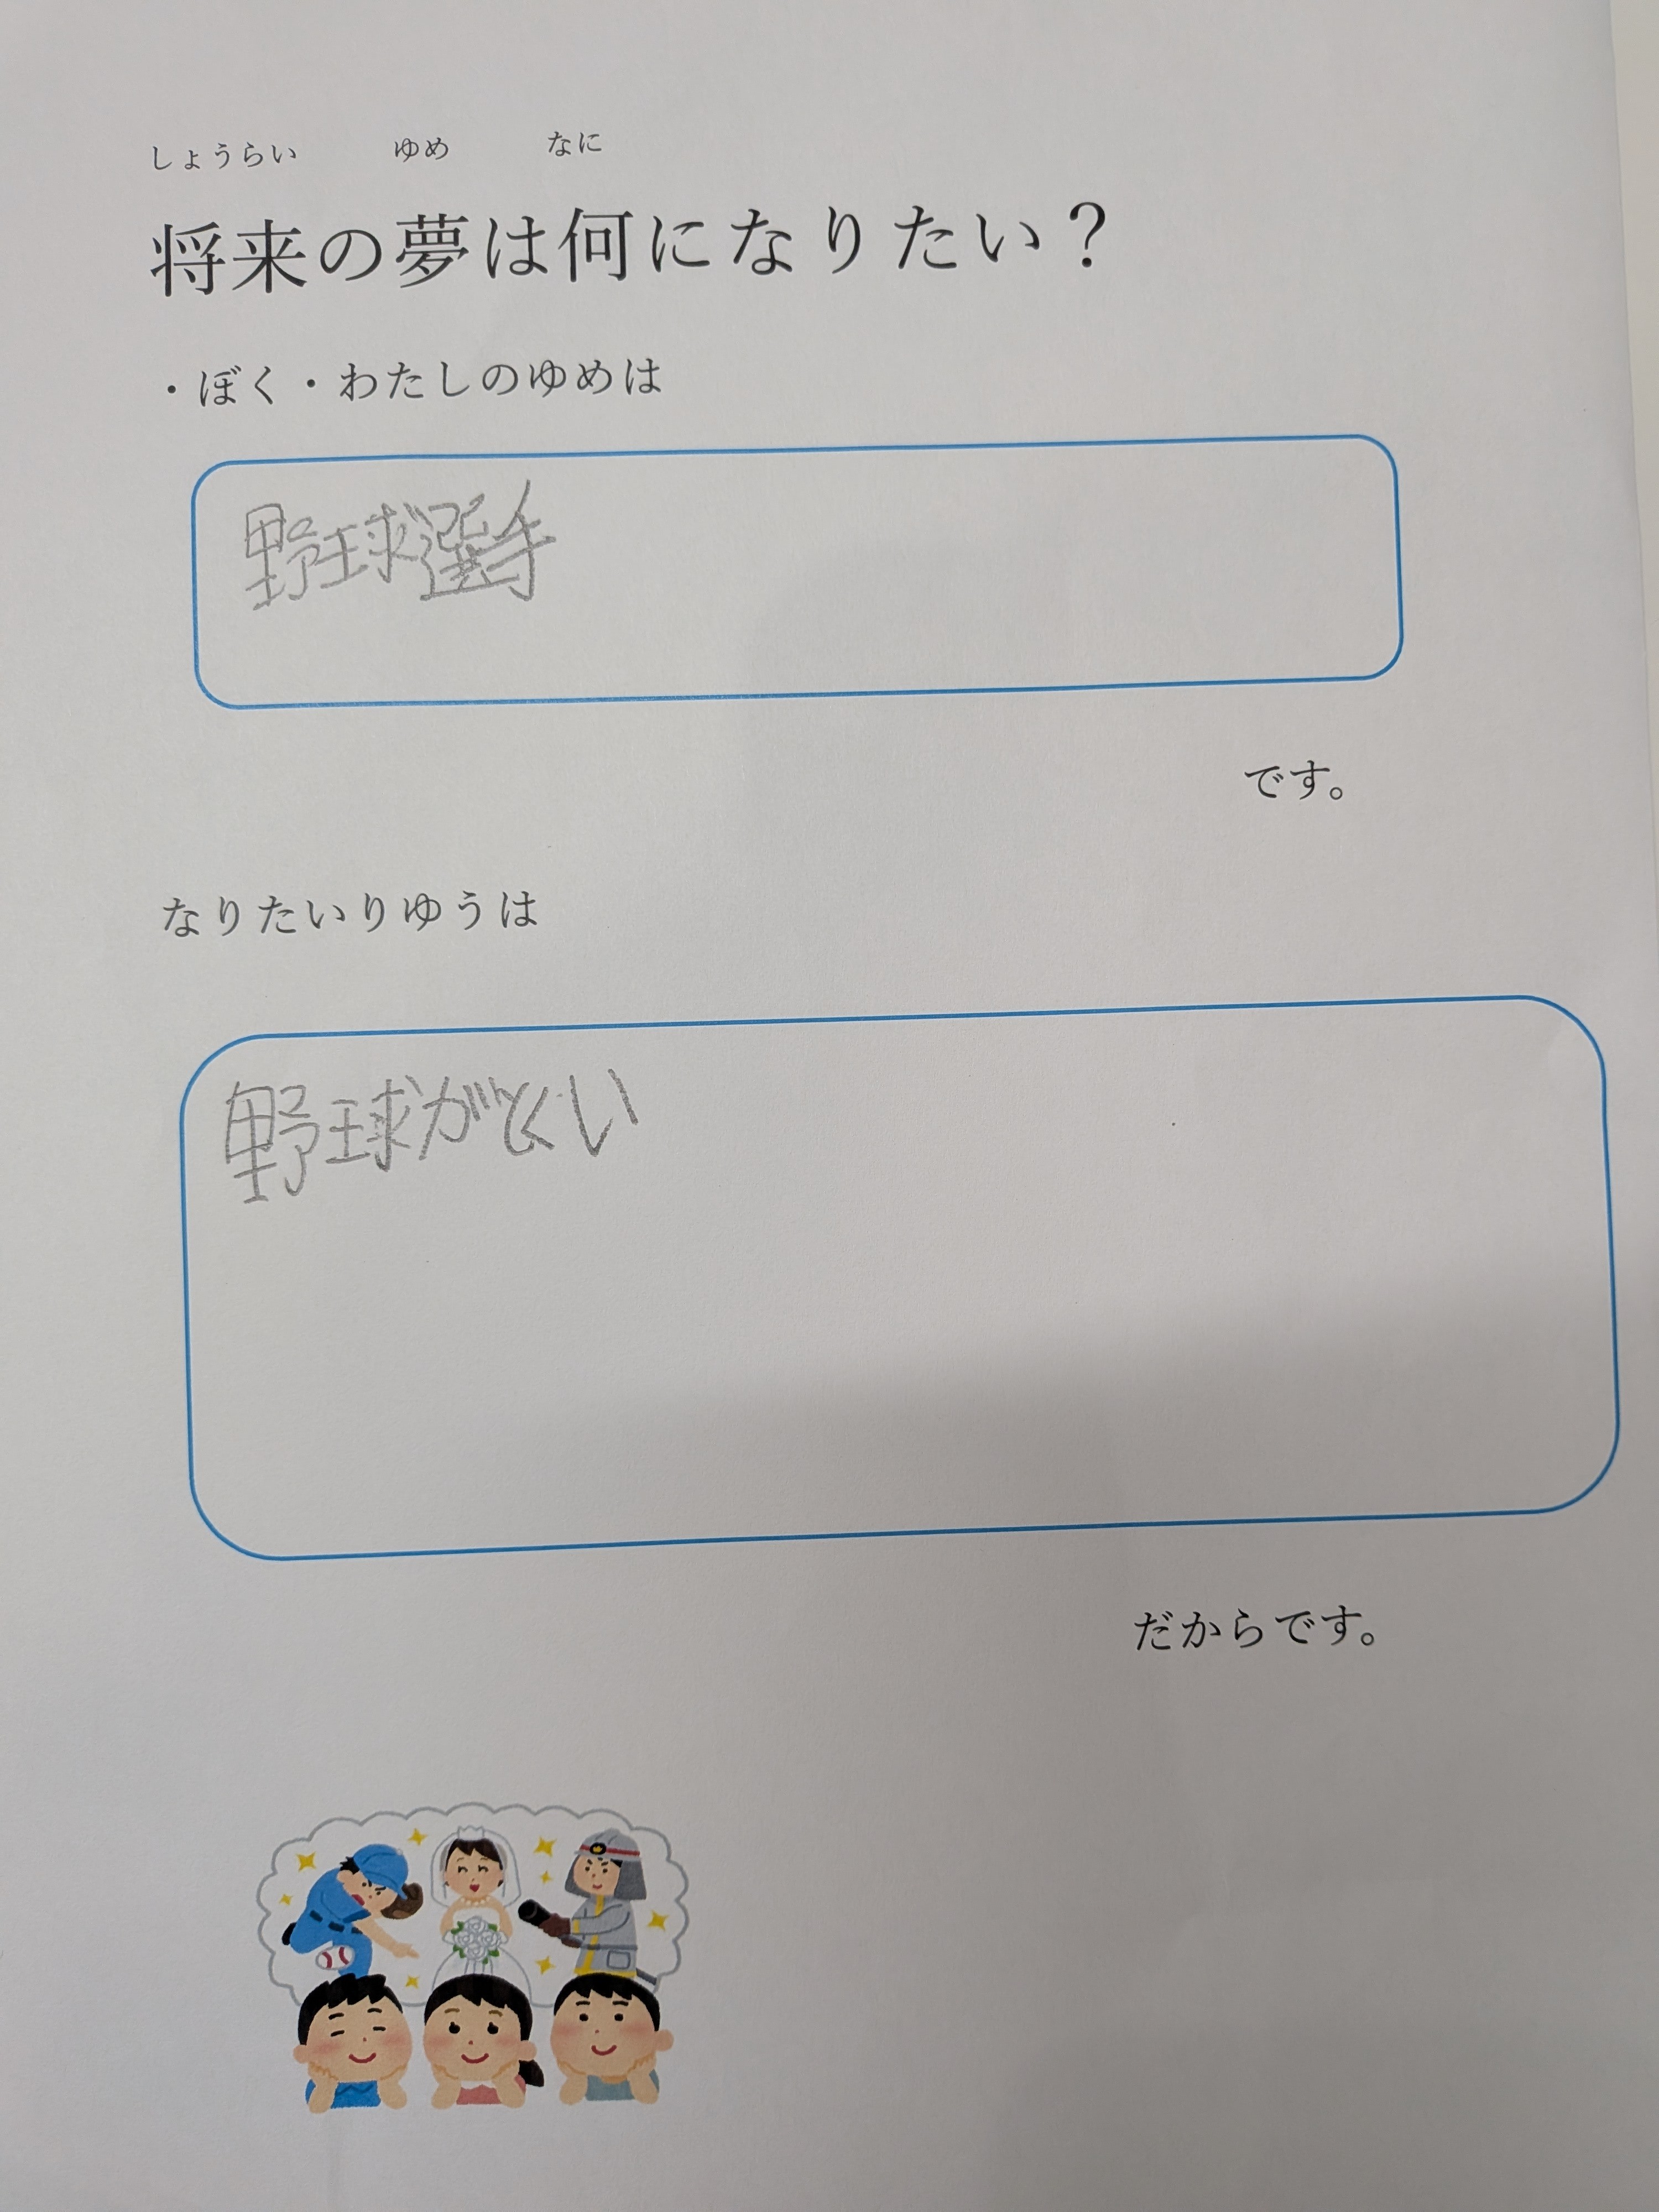 しょうらい ゆめ なに
将来の夢は何になりたい？
・ぼく・わたしのゆめは
野球選手
です。
なりたいりゆうは
野球がとくい
だからです。